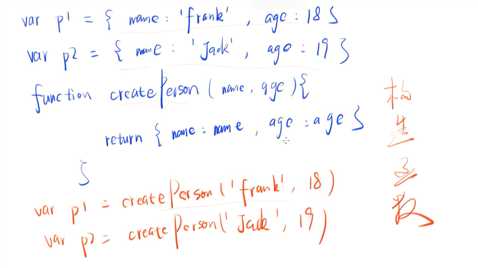 var p1 = { name : 'frank' , age : 18 }
var p2 = { name : 'Jack' , age : 19 }
function createPerson ( name, age ) {
return { name : name , age : age }
}
var p1 = createPerson ( 'frank' , 18 )
var p2 = createPerson ( 'Jack' , 19 )
构造函数